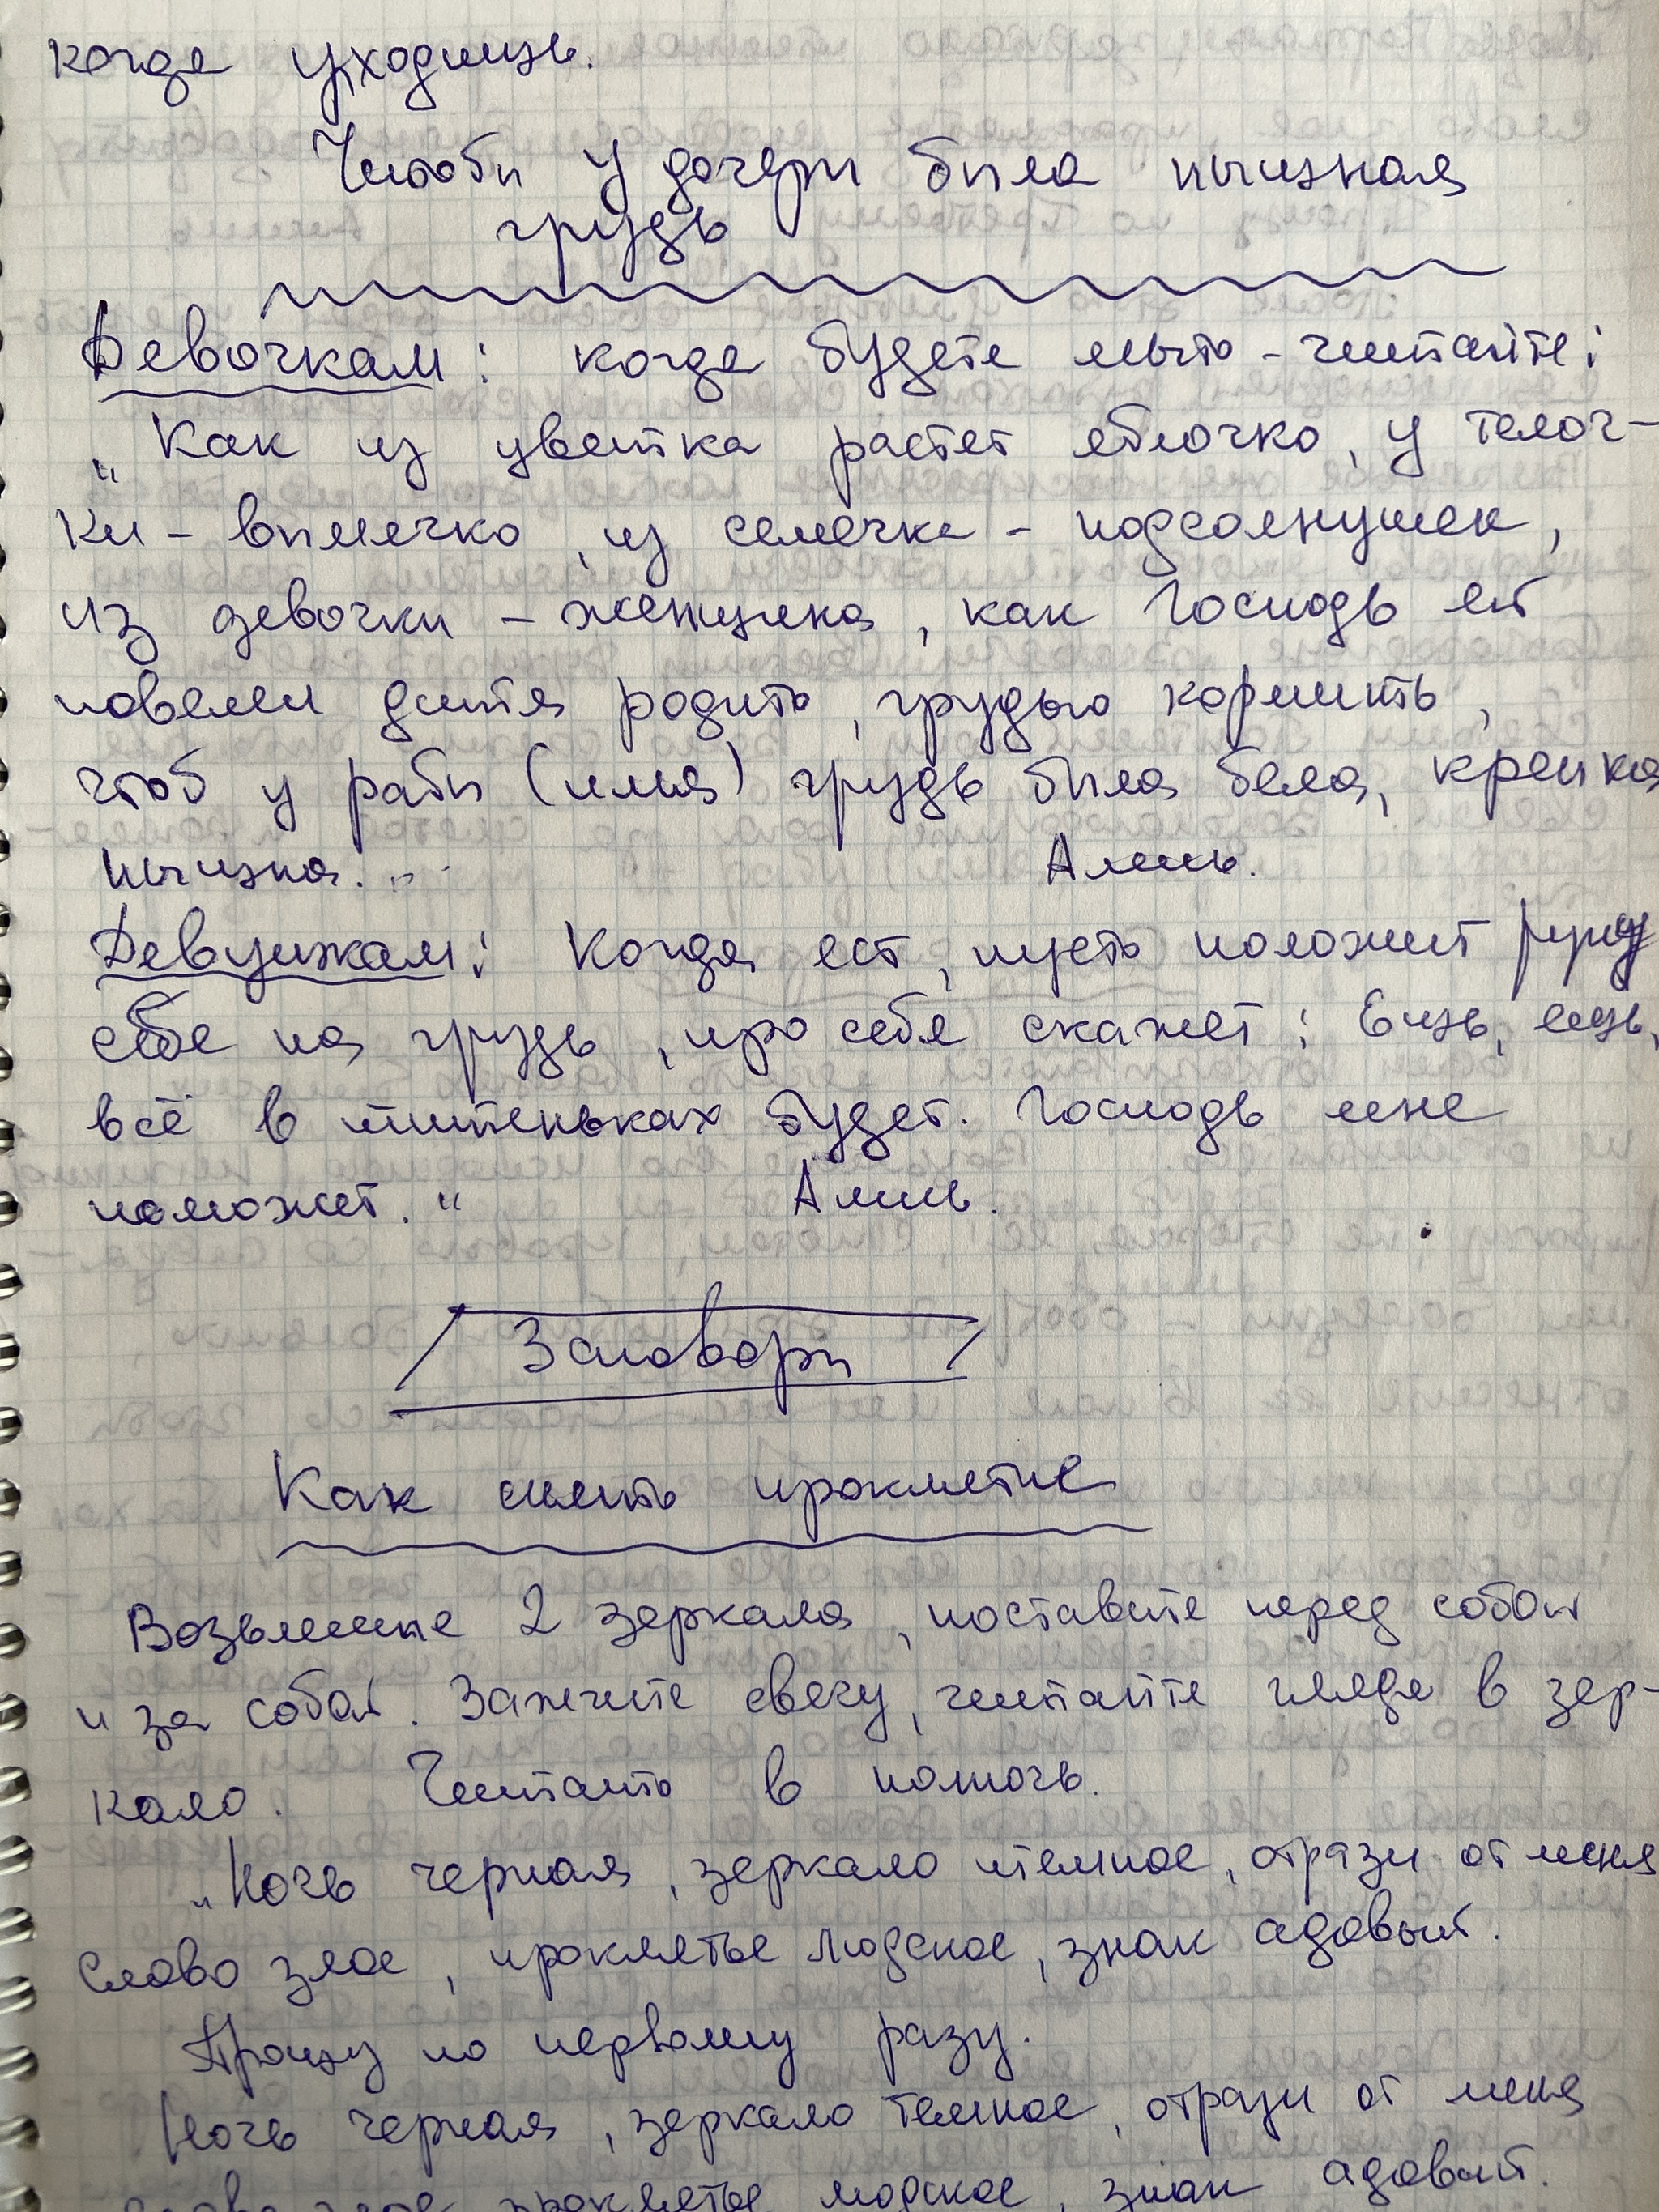 когда уходишь.
Чтобы у дочери была пышная
грудь
Девочкам: когда будете мыть - читайте:
"Как из цветка растет яблочко, у телоч-
ки - вымечко, из семечка - подсолнушек,
из девочки - женщина, как Господь ей
повелел дитя родить, грудью кормить,
чтоб у рабы (имя) грудь была бела, крепка
пышна." Аминь.
Девушкам: Когда ест, пусть положит руку
себе на грудь, про себя скажет: Ешь, ешь,
всё в титеньках будет. Господь мне
поможет." Аминь.
Заговоры
Как снять проклятие
Возьмите 2 зеркала, поставите перед собой
и за собой. Зажгите свечу, читайте глядя в зер-
кало. Читать в полночь.
"Ночь черная, зеркало темное, отрази от меня
слово злое, проклятье людское, знак адовый.
Прошу по первому разу.
Ночь черная, зеркало темное, отрази от меня
слово злое, проклятье людское, знак адовый.